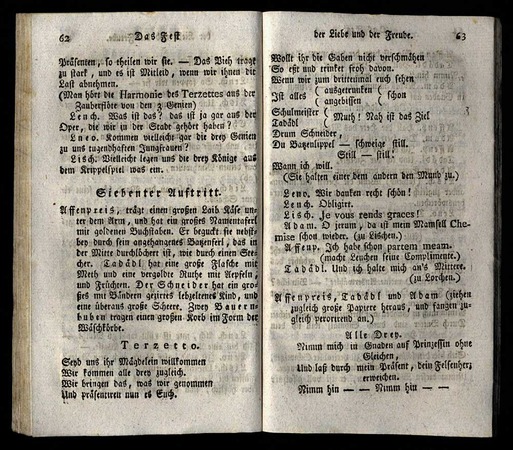 62 Das Fest
Präsenten, so theilen wir sie. — Das Vieh tragt
zu stark, und es ist Mitleid, wenn wir ihnen die
Last abnehmen.
(Man hört die Harmonie des Terzettes aus der
Zauberflöte von den 3 Genien)
Lench. Was ist das? das ist ja gar aus der
Oper, die wir in der Stadt gehört haben?
Leno. Kommen vielleicht gar die drey Genien
zu uns tugendhaften Jungfrauen?
Lisch. Vielleicht legen uns die drey Könige aus
dem Krippelspiel was ein.
Siebenter Auftritt.
Affenpreis, trägt einen großen Laib Käse un-
ter dem Arm, und hat ein großes Namentaferl
mit goldenen Buchstaben. Er beguckt sie nebst-
bey durch sein angehangenes Batzenferl, das in
der Mitte durchlöchert ist, wie durch einen Ste-
cher. Tadädl hat eine große Flasche mit
Meth und eine vergoldte Ruthe mit Aepfeln,
und Früchten. Der Schneider hat ein gro-
ßes mit Bändern gezirtes lebzeltenes Kind, und
eine überaus große Scheere. Zwey Bauern-
buben tragen einen großen Korb im Form der
Wäschkörbe.
Terzetto.
Seyd uns ihr Mägdelein willkommen
Wir kommen alle drey zugleich.
Wir bringen das, was wir genommen
Und präsentiren nun es Euch.
der Liebe und der Freude. 63
Wollt ihr die Gaben nicht verschmähen
So eßt und trinket froh davon.
Wenn wir zum drittenmal euch sehen
Ist alles { ausgetrunken / angebissen { schon
Schulmeister
Tadädl { Muth! Nah ist das Ziel
Drum Schneider,
Du Batzenlippel — schweige still.
Still — still!
Wann ich will.
(Sie halten einer dem andern den Mund zu.)
Leno. Wir danken recht schön!
Lench. Obligirt.
Lisch. Je vous rends graces!
Adam. O jerum, da ist mein Mamsell Che-
mise schon wieder. (zu Lischen.)
Affenp. Ich habe schon partem meam.
(macht Lenchen seine Complimente.)
Tadädl. Und ich halte mich an's Mittere.
(zu Lorchen.)
Affenpreis, Tadädl und Adam (ziehen
zugleich große Papiere heraus, und fangen zu-
gleich perorirend an.)
Alle Drey.
Nimm mich in Gnaden auf Prinzessin ohne
Gleichen,
Und laß durch mein Präsent, dein Felsenherz
erweichen.
Nimm hin — — Nimm hin — —